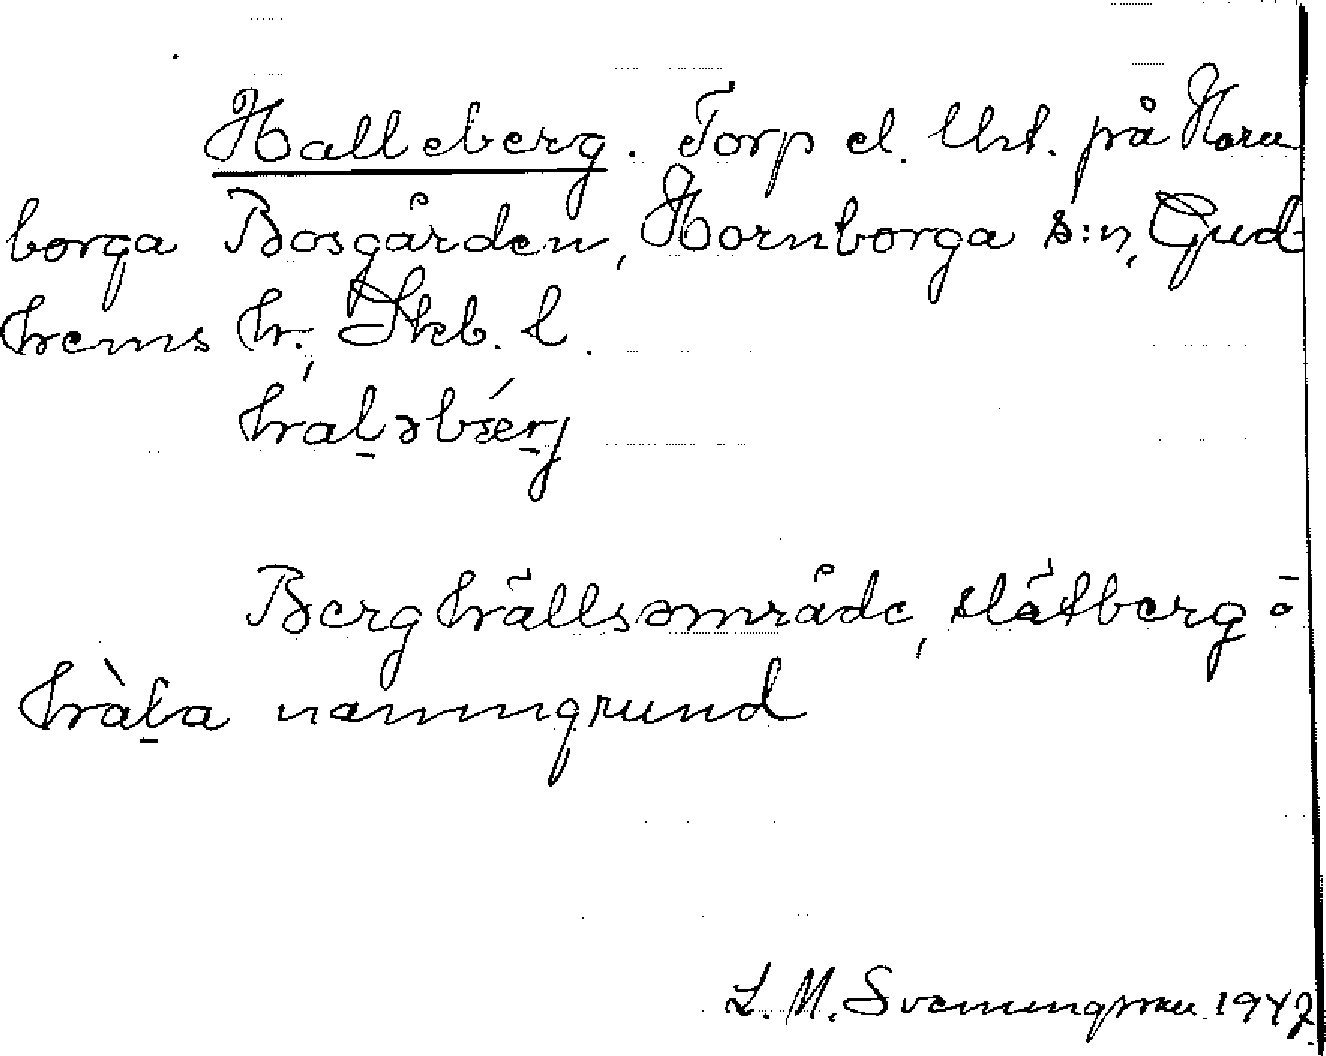 Halleberg. Torp el. lht. på Horn
borga Bosgården, Hornborga s:n, Gud
hems hr, Skb. l.
haḻəbærj
Berghällsområde, slätberg =
hàḻa namngrund
L. M. Svenungsson 1947